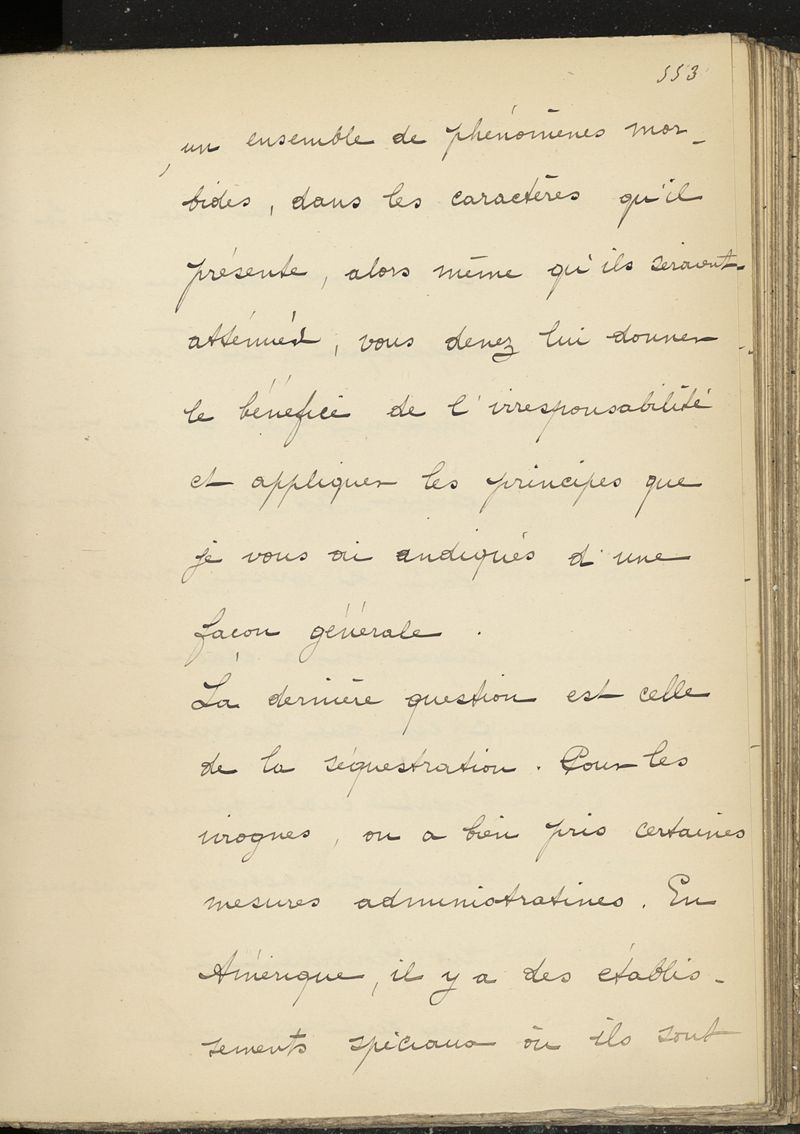 553
, un ensemble de phénomènes mor-
bides, dans les caractères qu'il
présente, alors même qu'ils seraient
atténués, vous devez lui donner
le bénéfice de l'irresponsabilité
et appliquer les principes que
je vous ai indiqués d'une
façon générale.
La dernière question est celle
de la séquestration. Pour les
ivrognes, on a bien pris certaines
mesures administratives. En
Amérique, il y a des établis-
sements spéciaux où ils sont